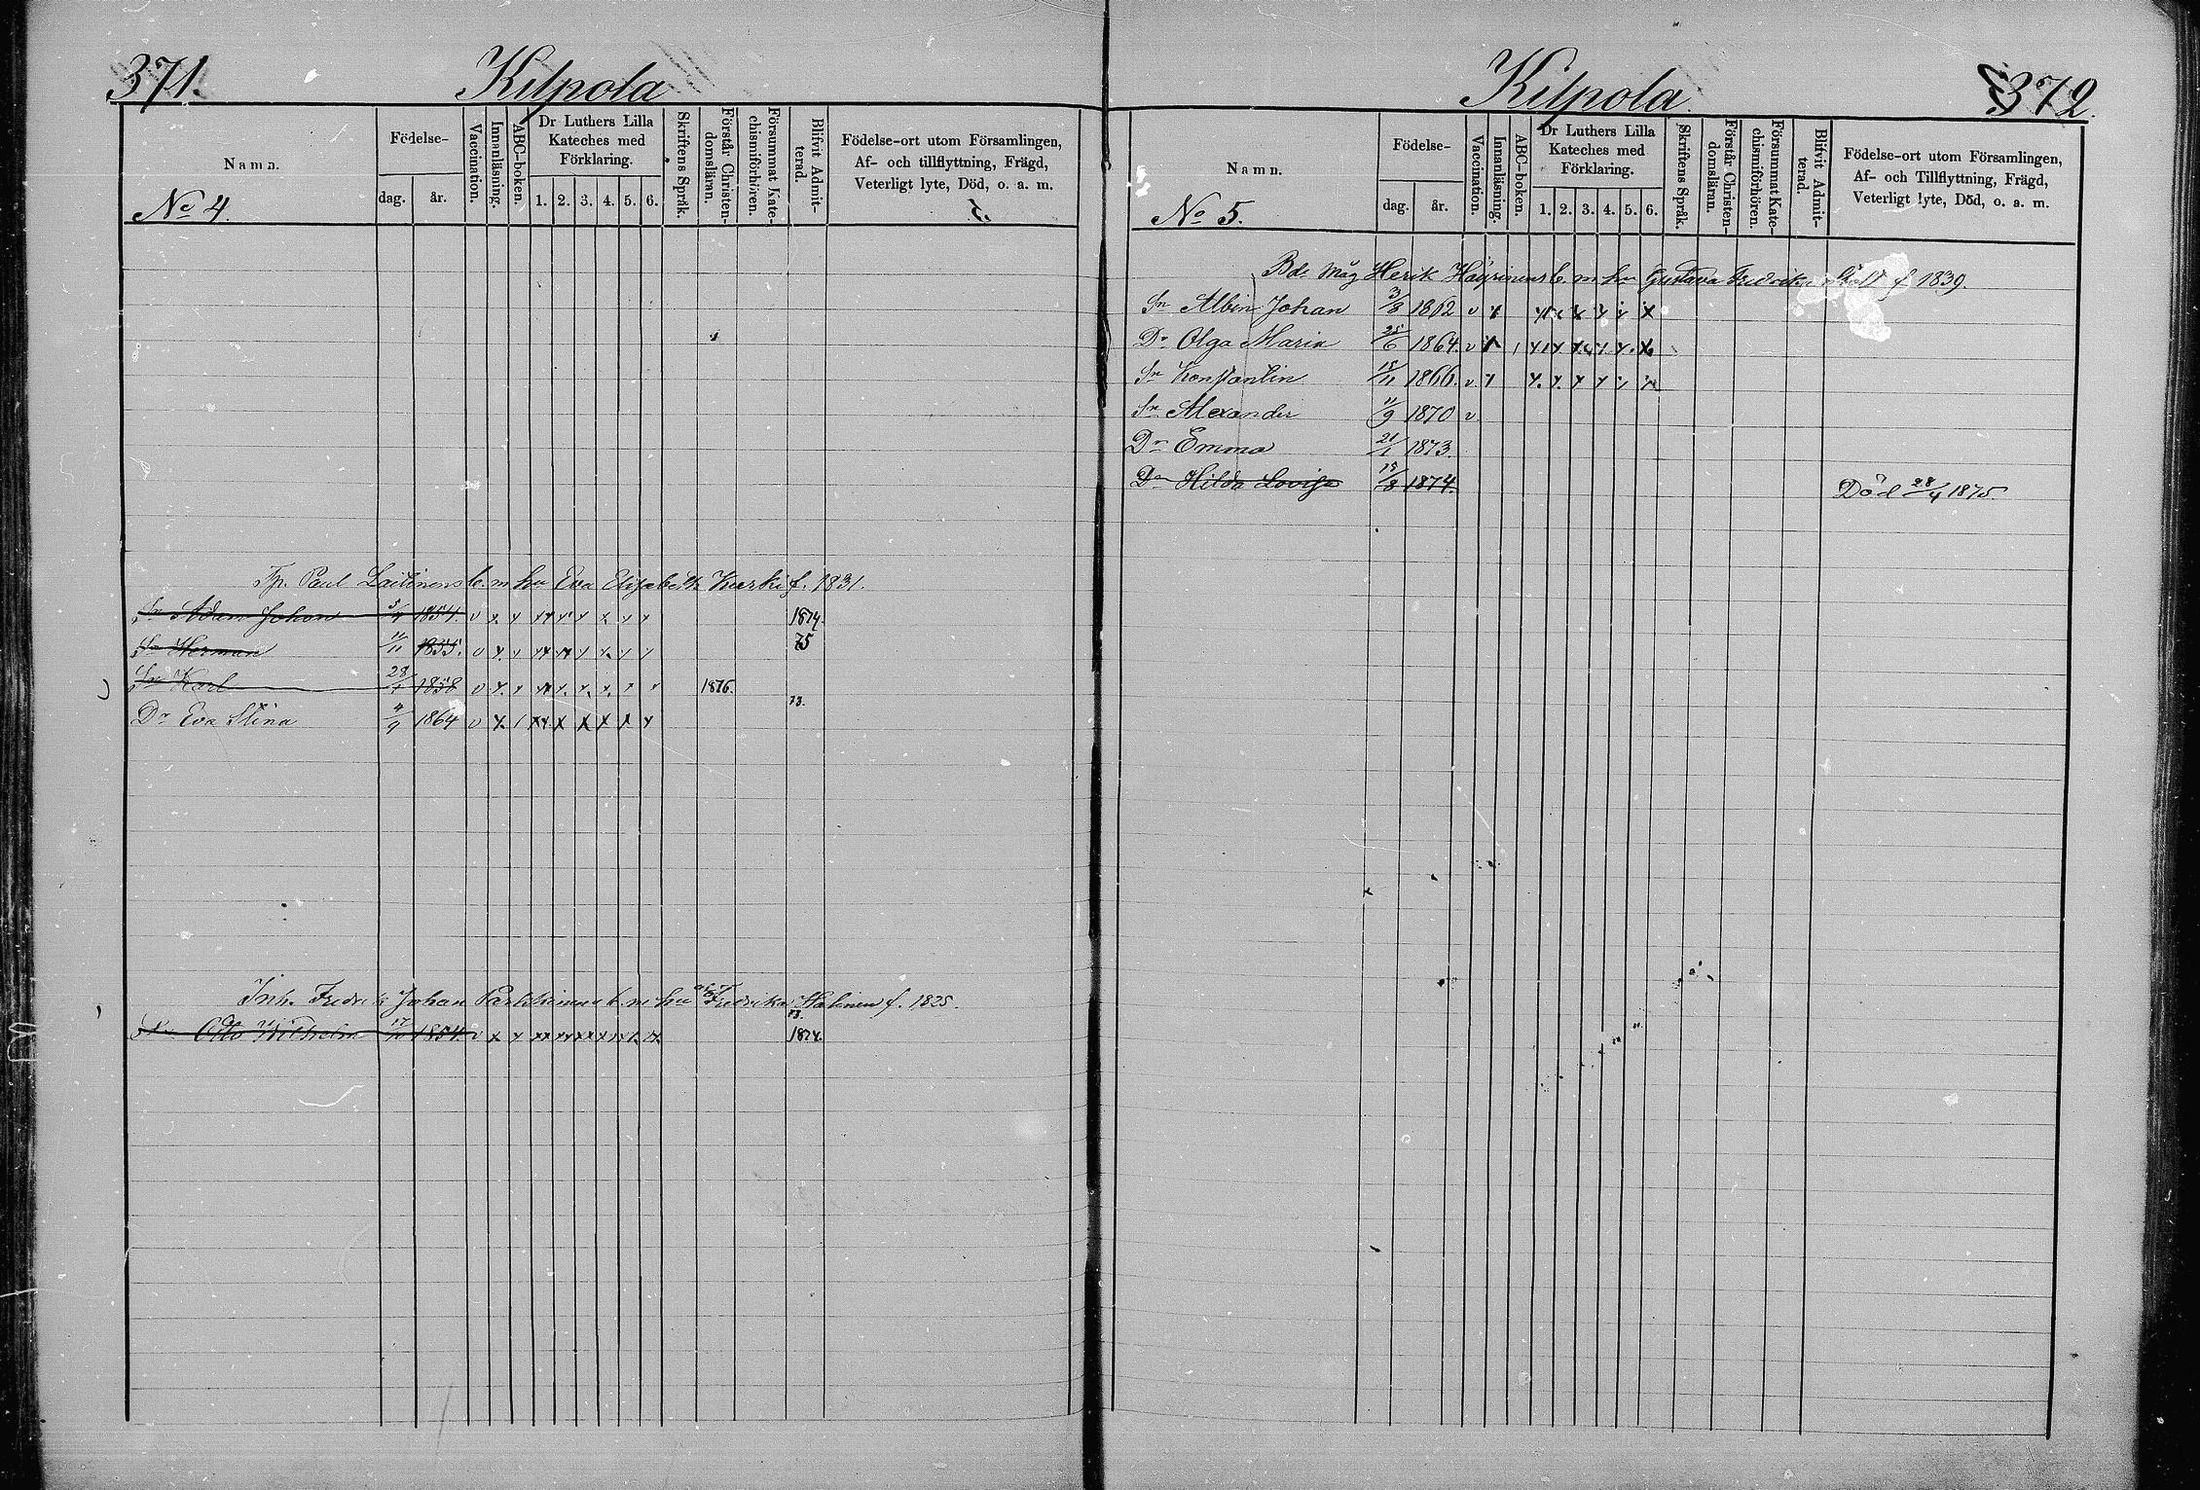 371.
Kilpola
Namn.
Födelse-
dag.
år.
Vaccination.
Innanläsning.
ABC-boken.
Dr Luthers Lilla
Kateches med
Förklaring.
1. 2. 3. 4. 5. 6.
Skriftens Språk.
Förstår Christen-
domsläran.
Försummat Kate-
chismiförhören.
Blifvit Admit-
terad.
Födelse-ort utom Församlingen,
Af- och tillflyttning, Frägd,
Veterligt lyte, Död, o. a. m.
No 4.
Paul Laitinens b. m hu Eva Elisabeth Kurki f. 1831.
Sn Adam Johan 5/4 1854. v x x x x x x x x 1874.
Sn Herman 11/11 1855. v x x x x x x x 75
Sn Karl 28/1 1858 v x x x x x x x x 1876.
73.
Dr Eva Stina 4/9 1864 v x / x x x x x x x
Inh. Fredrik Johan Partikainens b. m hu Fredrika Hakinen f. 1825.
73.
Sn Otto Wilhelm 17/10 1854. v x x xx xx xx x x x 1874.
Kilpola
372.
Namn.
Födelse-
dag.
år.
Vaccination.
Innanläsning.
ABC-boken.
Dr Luthers Lilla
Kateches med
Förklaring.
1. 2. 3. 4. 5. 6.
Skriftens Språk.
Förstår Christen-
domsläran.
Försummat Kate-
chismiförhören.
Blifvit Admit-
terad.
Födelse-ort utom Församlingen,
Af- och Tillflyttning, Frägd,
Veterligt lyte, Död, o. a. m.
No 5.
Bds Måg Herik Häyrinens b. m hu Gustava Fredrika f 1839.
Sn Albin Johan 3/8 1862 v x x x x x x x
Dr Olga Maria 25/6 1864. v x / x x x x x x
Sn Konstantin 18/11 1866. v x x x x x x x
Sn Alexander 11/9 1870 v
Dr Emma 21/1 1873.
Dr Hilda Lovisa 15/8 1874. Död 28/4 1875